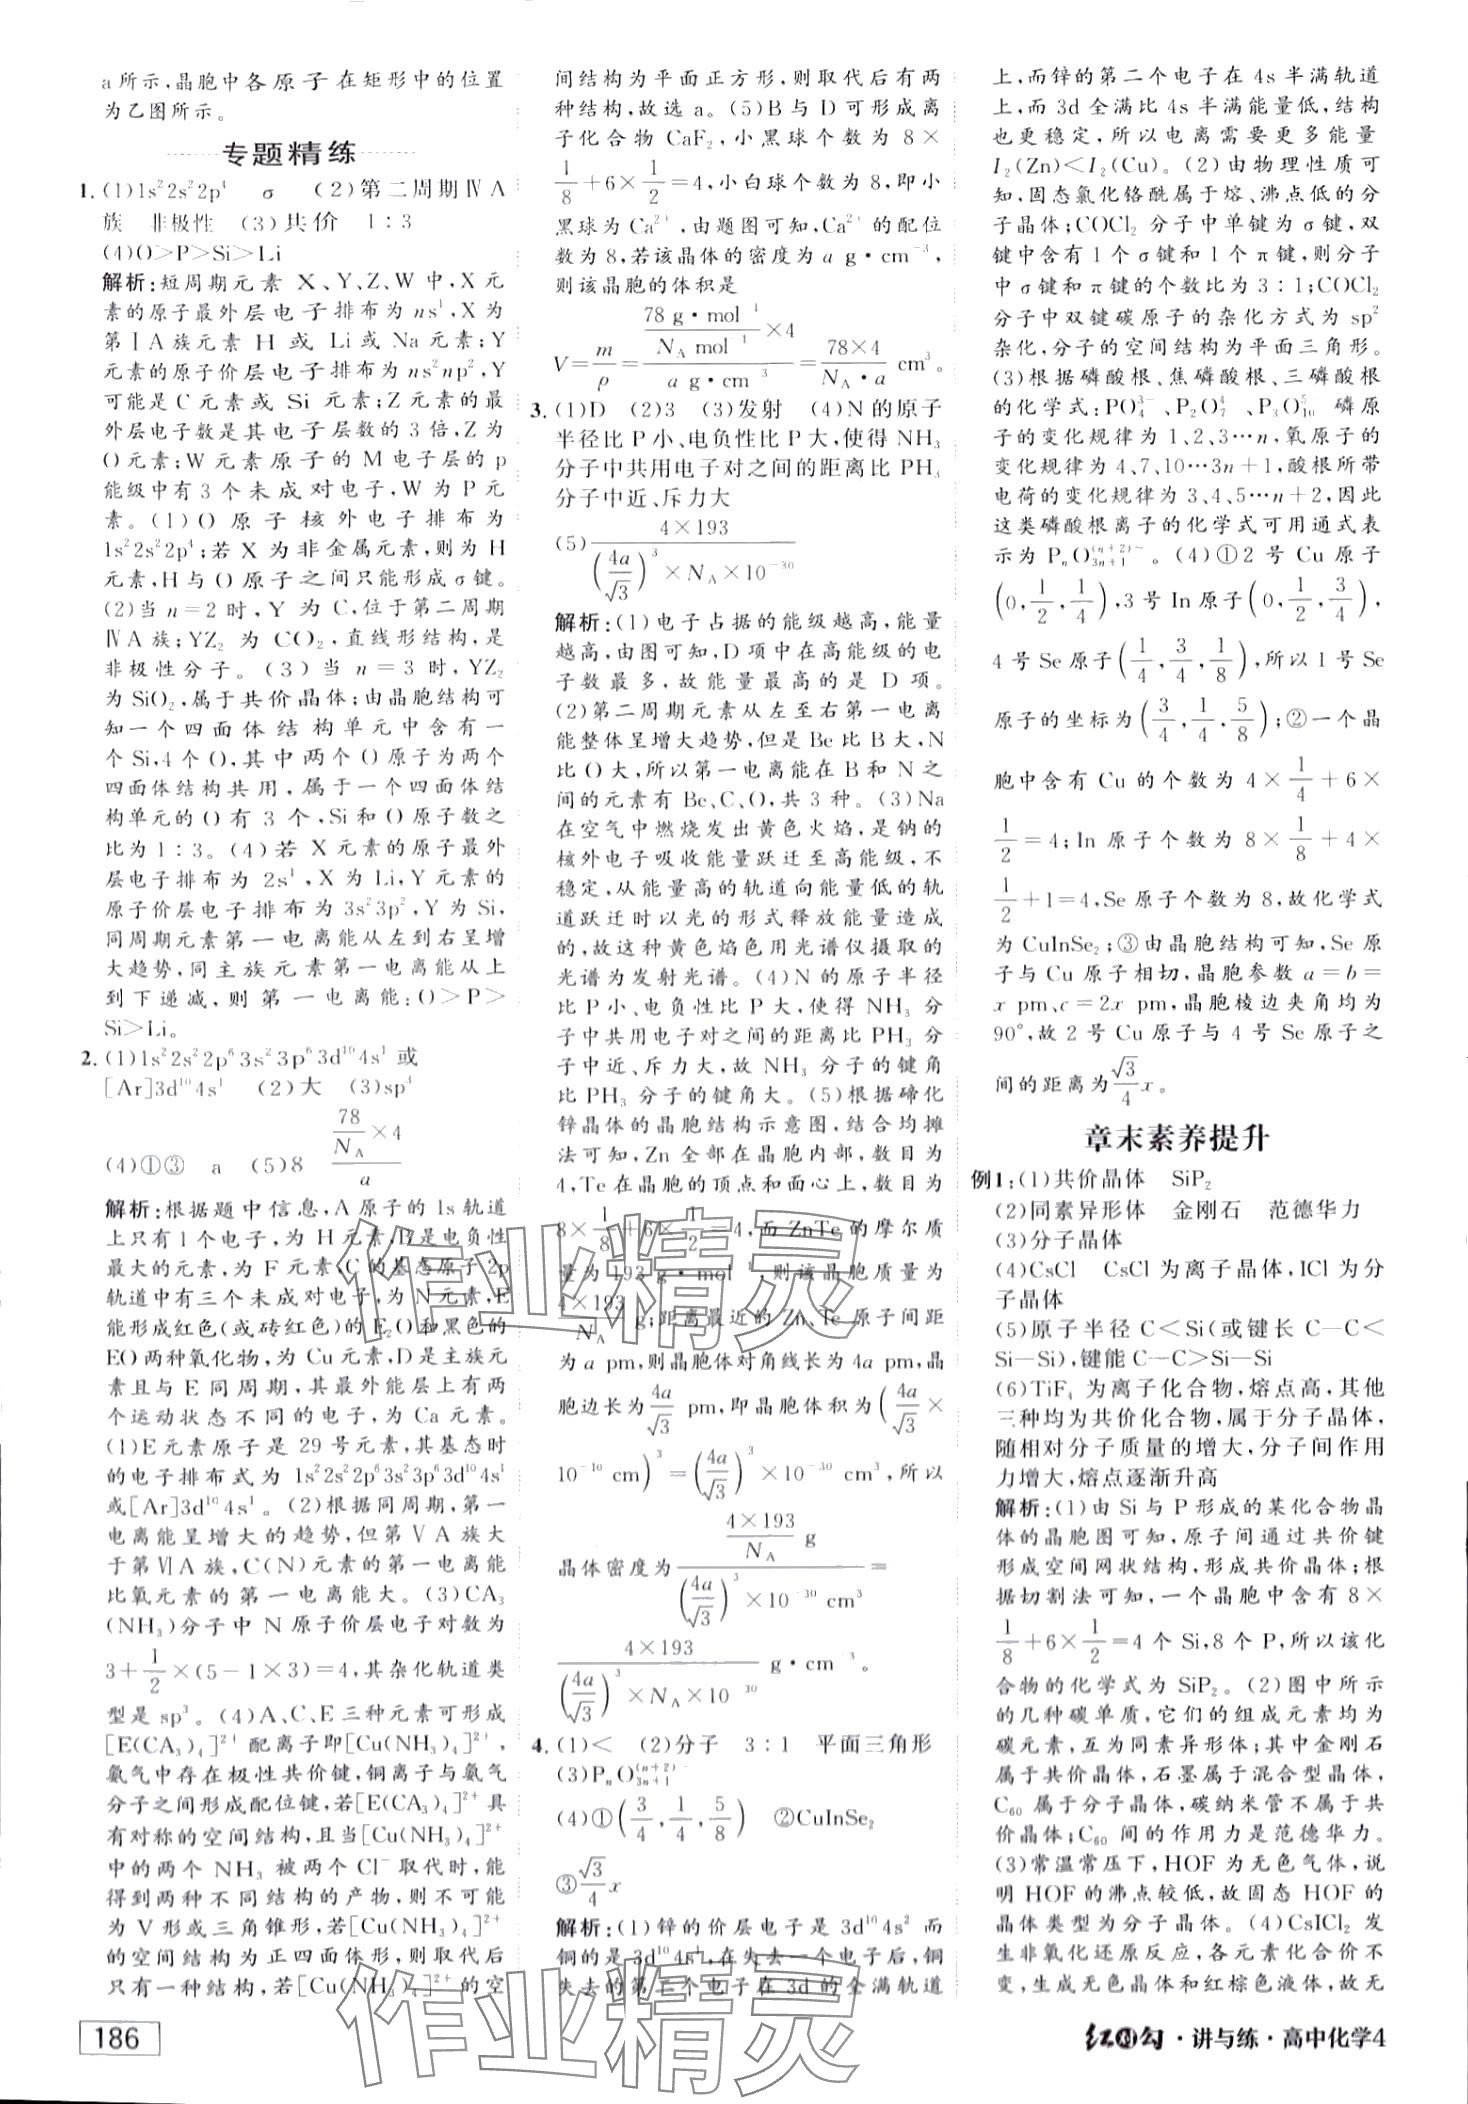 a所示,晶胞中各原子在矩形中的位置
为乙图所示。
专题精练
1. (1)1s²2s²2p⁴ σ (2)第二周期ⅣA
族 非极性 (3)共价 1∶3
(4)O>P>Si>Li
解析:短周期元素 X、Y、Z、W 中,X 元
素的原子最外层电子排布为 ns¹,X 为
第ⅠA族元素 H 或 Li或Na元素;Y
元素的原子价层电子排布为ns²np²,Y
可能是C元素或 Si 元素;Z元素的最
外层电子数是其电子层数的3倍,Z为
O元素;W元素原子的M电子层的p
能级中有3个未成对电子,W为P元
素。(1)O 原子核外电子排布为
1s²2s²2p⁴;若X为非金属元素,则为H
元素,H与O原子之间只能形成σ键。
(2)当 n=2时,Y 为 C,位于第二周期
ⅣA族;YZ₂ 为 CO₂,直线形结构,是
非极性分子。(3)当 n=3 时,YZ₂
为SiO₂,属于共价晶体;由晶胞结构可
知一个四面体结构单元中含有一
个Si,4个O,其中两个O原子为两个
四面体结构共用,属于一个四面体结
构单元的O有3个,Si和O原子数之
比为1∶3。(4)若 X元素的原子最外
层电子排布为 2s¹,X为Li,Y元素的
原子价层电子排布为3s²3p²,Y为Si,
同周期元素第一电离能从左到右呈增
大趋势,同主族元素第一电离能从上
到下递减,则第一电离能:O>P>
Si>Li。
2. (1)1s²2s²2p⁶3s²3p⁶3d¹⁰4s¹或
[Ar]3d¹⁰4s¹ (2)大 (3)sp⁴
(4)①③ a (5)8 (78/N_A×4)/a
解析:根据题中信息,A原子的1s轨道
上只有1个电子,为H元素,B是电负性
最大的元素,为F元素,C的基态原子2p
轨道中有三个未成对电子,为N元素,E
能形成红色(或砖红色)的E₂O和黑色的
EO两种氧化物,为Cu元素,D是主族元
素且与E同周期,其最外能层上有两
个运动状态不同的电子,为Ca元素。
(1)E元素原子是29号元素,其基态时
的电子排布式为 1s²2s²2p⁶3s²3p⁶3d¹⁰4s¹
或[Ar]3d¹⁰4s¹。(2)根据同周期,第一
电离能呈增大的趋势,但第ⅤA族大
于第ⅥA族,C(N)元素的第一电离能
比氧元素的第一电离能大。(3)CA₃
(NH₃)分子中N原子价层电子对数为
3+1/2×(5-1×3)=4,其杂化轨道类
型是sp³。(4)A、C、E三种元素可形成
[E(CA₃)₄]²⁺配离子即[Cu(NH₃)₄]²⁺,
氨气中存在极性共价键,铜离子与氨气
分子之间形成配位键,若[E(CA₃)₄]²⁺具
有对称的空间结构,且当[Cu(NH₃)₄]²⁺
中的两个NH₃被两个Cl⁻取代时,能
得到两种不同结构的产物,则不可能
为V形或三角锥形,若[Cu(NH₃)₄]²⁺
的空间结构为正四面体形,则取代后
只有一种结构,若[Cu(NH₃)₄]²⁺的空
间结构为平面正方形,则取代后有两
种结构,故选a。(5)B与D可形成离
子化合物 CaF₂,小黑球个数为 8×
1/8+6×1/2=4,小白球个数为8,即小
黑球为Ca²⁺,由题图可知,Ca²⁺的配位
数为8,若该晶体的密度为 a g·cm⁻³,
则该晶胞的体积是
V=m/ρ=(78 g·mol⁻¹/N_A mol⁻¹×4)/(a g·cm⁻³)=78×4/(N_A·a) cm³。
3. (1)D (2)3 (3)发射 (4)N的原子
半径比P小、电负性比P大,使得NH₃
分子中共用电子对之间的距离比PH₃
分子中近、斥力大
(5) 4×193/((4a/√3)³×N_A×10⁻³⁰)
解析:(1)电子占据的能级越高,能量
越高,由图可知,D项中在高能级的电
子数最多,故能量最高的是 D 项。
(2)第二周期元素从左至右第一电离
能整体呈增大趋势,但是Be比B大,N
比O大,所以第一电离能在B和N之
间的元素有Be、C、O,共3种。(3)Na
在空气中燃烧发出黄色火焰,是钠的
核外电子吸收能量跃迁至高能级,不
稳定,从能量高的轨道向能量低的轨
道跃迁时以光的形式释放能量造成
的,故这种黄色焰色用光谱仪摄取的
光谱为发射光谱。(4)N的原子半径
比P小、电负性比P大,使得 NH₃ 分
子中共用电子对之间的距离比PH₃分
子中近、斥力大,故NH₃分子的键角
比PH₃分子的键角大。(5)根据碲化
锌晶体的晶胞结构示意图,结合均摊
法可知,Zn 全部在晶胞内部,数目为
4,Te在晶胞的顶点和面心上,数目为
8×1/8+6×1/2=4,而ZnTe的摩尔质
量为193 g·mol⁻¹,则该晶胞质量为
4×193/N_A g;距离最近的Zn、Te原子间距
为a pm,则晶胞体对角线长为4a pm,晶
胞边长为4a/√3 pm,即晶胞体积为(4a/√3×
10⁻¹⁰ cm)³=(4a/√3)³×10⁻³⁰ cm³,所以
晶体密度为(4×193/N_A g)/((4a/√3)³×10⁻³⁰ cm³)=
4×193/((4a/√3)³×N_A×10⁻³⁰) g·cm⁻³。
4. (1)< (2)分子 3∶1 平面三角形
(3)PₙO₃ₙ₊₁⁽ⁿ⁺²⁾⁻
(4)①(3/4,1/4,5/8) ②CuInSe₂
③√3/4x
解析:(1)锌的价层电子是 3d¹⁰4s² 而
铜的是3d¹⁰4s¹,在失去一个电子后,铜
失去的第二个电子在3d的全满轨道
上,而锌的第二个电子在4s半满轨道
上,而3d全满比4s半满能量低,结构
也更稳定,所以电离需要更多能量
I₂(Zn)<I₂(Cu)。(2)由物理性质可
知,固态氯化铬酰属于熔、沸点低的分
子晶体;COCl₂分子中单键为σ键,双
键中含有1个σ键和1个π键,则分子
中σ键和π键的个数比为3∶1;COCl₂
分子中双键碳原子的杂化方式为 sp²
杂化,分子的空间结构为平面三角形。
(3)根据磷酸根、焦磷酸根、三磷酸根
的化学式:PO₄³⁻、P₂O₇⁴⁻、P₃O₁₀⁵⁻ 磷原
子的变化规律为1、2、3…n,氧原子的
变化规律为4、7、10…3n+1,酸根所带
电荷的变化规律为3、4、5…n+2,因此
这类磷酸根离子的化学式可用通式表
示为PₙO₃ₙ₊₁⁽ⁿ⁺²⁾⁻。(4)①2号Cu原子
(0,1/2,1/4),3号In原子(0,1/2,3/4),
4号Se原子(1/4,3/4,1/8),所以1号Se
原子的坐标为(3/4,1/4,5/8);②一个晶
胞中含有 Cu 的个数为 4×1/4+6×
1/2=4;In 原子个数为 8×1/8+4×
1/2+1=4,Se原子个数为8,故化学式
为CuInSe₂;③由晶胞结构可知,Se原
子与Cu原子相切,晶胞参数a=b=
x pm、c=2x pm,晶胞棱边夹角均为
90°,故2号Cu原子与4号Se原子之
间的距离为√3/4x。
章末素养提升
例1:(1)共价晶体 SiP₂
(2)同素异形体 金刚石 范德华力
(3)分子晶体
(4)CsCl CsCl为离子晶体,ICl为分
子晶体
(5)原子半径C<Si(或键长C—C<
Si—Si),键能C—C>Si—Si
(6)TiF₄为离子化合物,熔点高,其他
三种均为共价化合物,属于分子晶体,
随相对分子质量的增大,分子间作用
力增大,熔点逐渐升高
解析:(1)由 Si 与 P 形成的某化合物晶
体的晶胞图可知,原子间通过共价键
形成空间网状结构,形成共价晶体;根
据切割法可知,一个晶胞中含有 8×
1/8+6×1/2=4个Si,8个P,所以该化
合物的化学式为SiP₂。(2)图中所示
的几种碳单质,它们的组成元素均为
碳元素,互为同素异形体;其中金刚石
属于共价晶体,石墨属于混合型晶体,
C₆₀属于分子晶体,碳纳米管不属于共
价晶体;C₆₀间的作用力是范德华力。
(3)常温常压下,HOF为无色气体,说
明 HOF 的沸点较低,故固态 HOF 的
晶体类型为分子晶体。(4)CsICl₂发
生非氧化还原反应,各元素化合价不
变,生成无色晶体和红棕色液体,故无
作业精灵
作业精灵
186
红对勾·讲与练·高中化学4